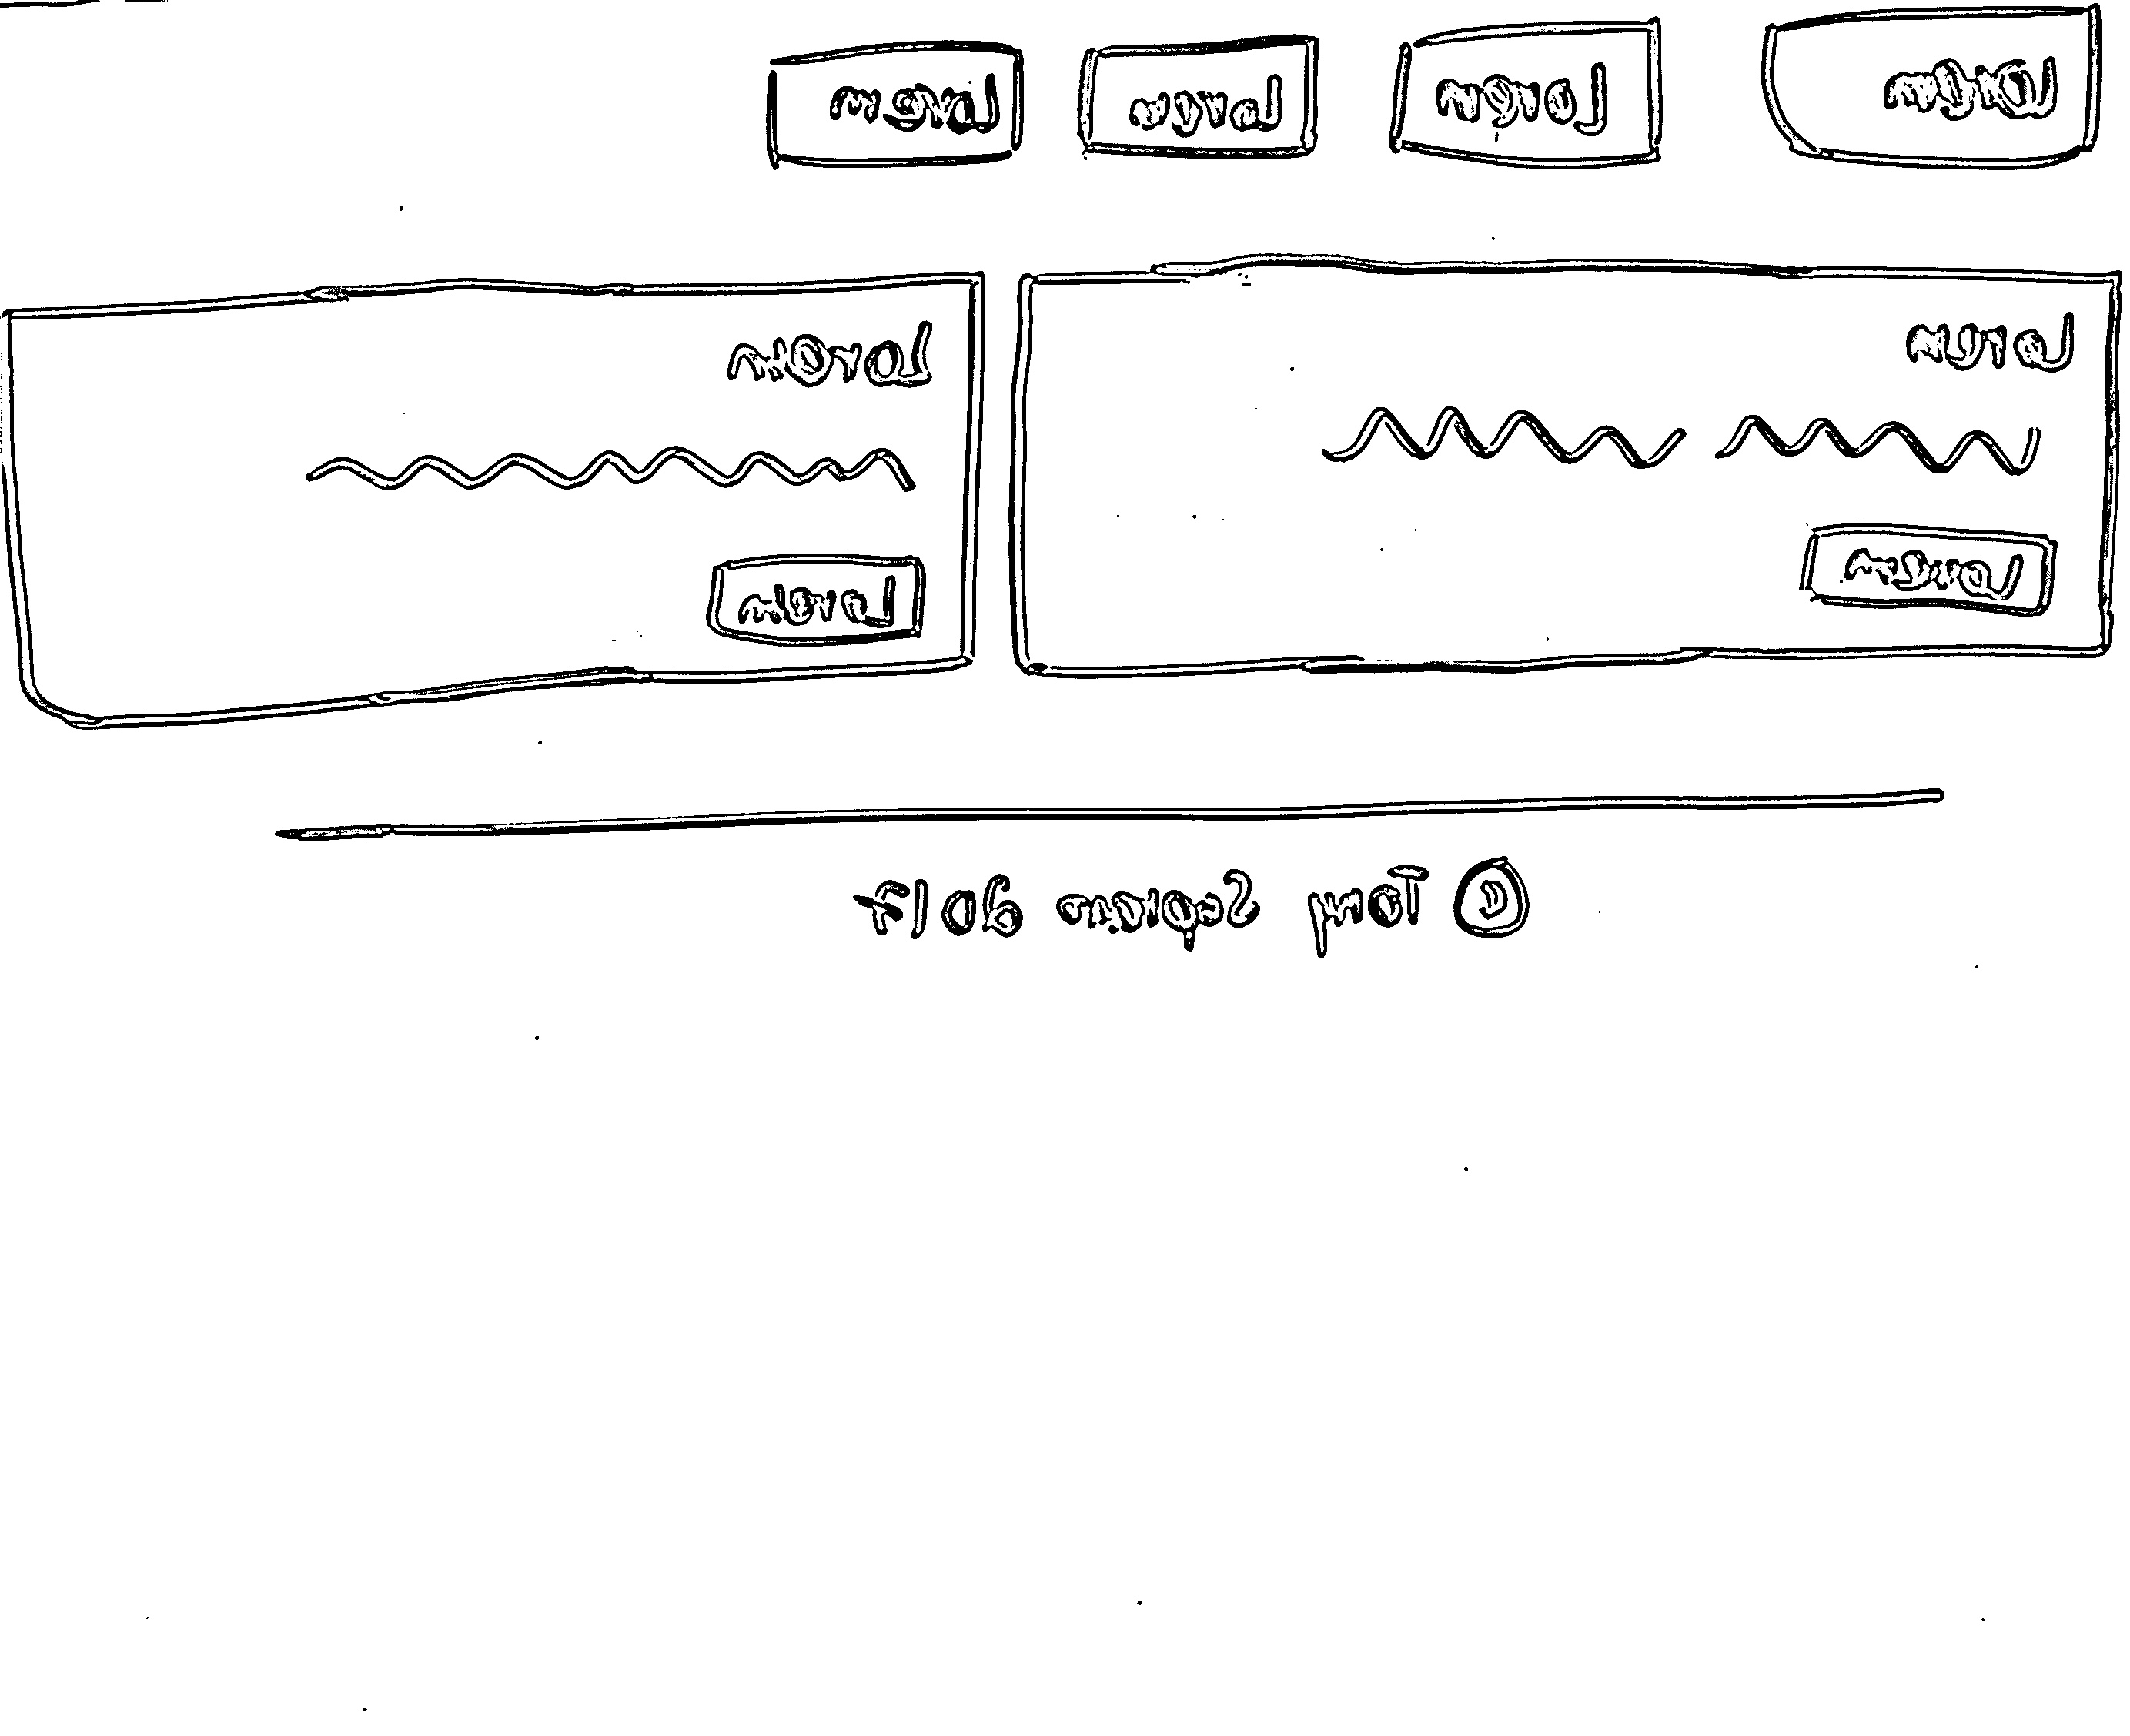 Lorem Lorem Lorem Lorem
Lorem
Lorem
Lorem
Lorem
© Tony 2017